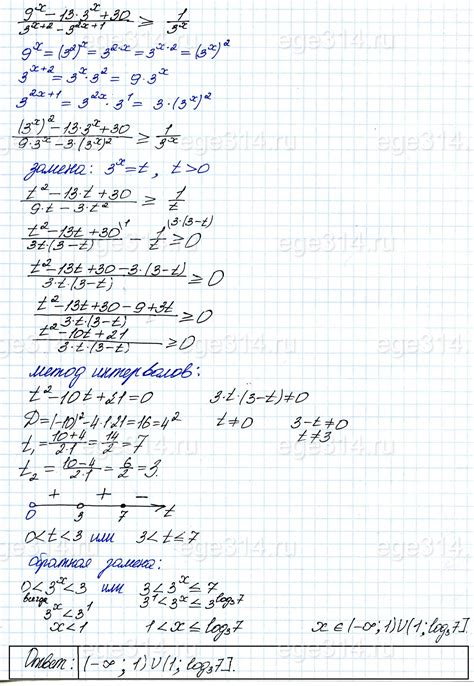 9^x − 13·3^x + 30 / 3^(x+2) − 3^(2x+1) ≥ 1/3^x
9^x = (3^2)^x = 3^(2·x) = 3^(x·2) = (3^x)^2
3^(x+2) = 3^x · 3^2 = 9·3^x
3^(2x+1) = 3^(2x) · 3^1 = 3·(3^x)^2
(3^x)^2 − 13·3^x + 30 / 9·3^x − 3·(3^x)^2 ≥ 1/3^x
замена: 3^x = t, t > 0
t^2 − 13·t + 30 / 9·t − 3·t^2 ≥ 1/t
t^2 − 13t + 30 \1 / 3t(3−t) − 1 \3·(3−t) / t ≥ 0
t^2 − 13t + 30 − 3·(3−t) / 3·t·(3−t) ≥ 0
t^2 − 13t + 30 − 9 + 3t / 3·t·(3−t) ≥ 0
t^2 − 10t + 21 / 3·t·(3−t) ≥ 0
метод интервалов:
t^2 − 10t + 21 = 0 3·t·(3−t) ≠ 0
D = (−10)^2 − 4·1·21 = 16 = 4^2 t ≠ 0 3−t ≠ 0
t₁ = 10+4 / 2·1 = 14/2 = 7 t ≠ 3
t₂ = 10−4 / 2·1 = 6/2 = 3
+ + −
0 3 7 t
0 < t < 3 или 3 < t ≤ 7
обратная замена:
0 < 3^x < 3 или 3 < 3^x ≤ 7
всегда 3^1 < 3^x ≤ 3^(log₃7)
3^x < 3^1
x < 1 1 < x ≤ log₃7 x ∈ (−∞; 1) ∪ (1; log₃7].
Ответ: (−∞; 1) ∪ (1; log₃7].
ege314.ru